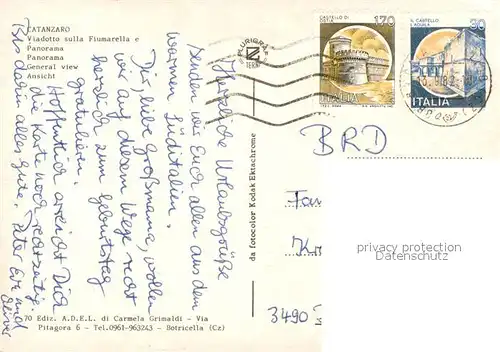 CATANZARO
Viadotto sulla Fiumarella e
Panorama
Panorama
General view
Ansicht
170
ITALIA
IL CASTELLO
ITALIA
Herzliche Urlaubsgrüße
senden wir Euch allen aus dem
warmen Süditalien.
Dir, liebe Großmama, wollen
wir auf diesem Wege recht
herzlich zum Geburtstag
gratulieren.
Hoffentlich erreicht Dich
die Karte noch rechtzeitig.
Bis dahin alles Gute, Peter Eve und
Oliver
da fotocolor Kodak Ektachrome
70 Ediz. A.D.E.L. di Carmela Grimaldi - Via
Pitagora 6 - Tel.0961-963243 - Botricella (Cz)
BRD
Fam
Kr
3490
privacy protection
Datenschutz